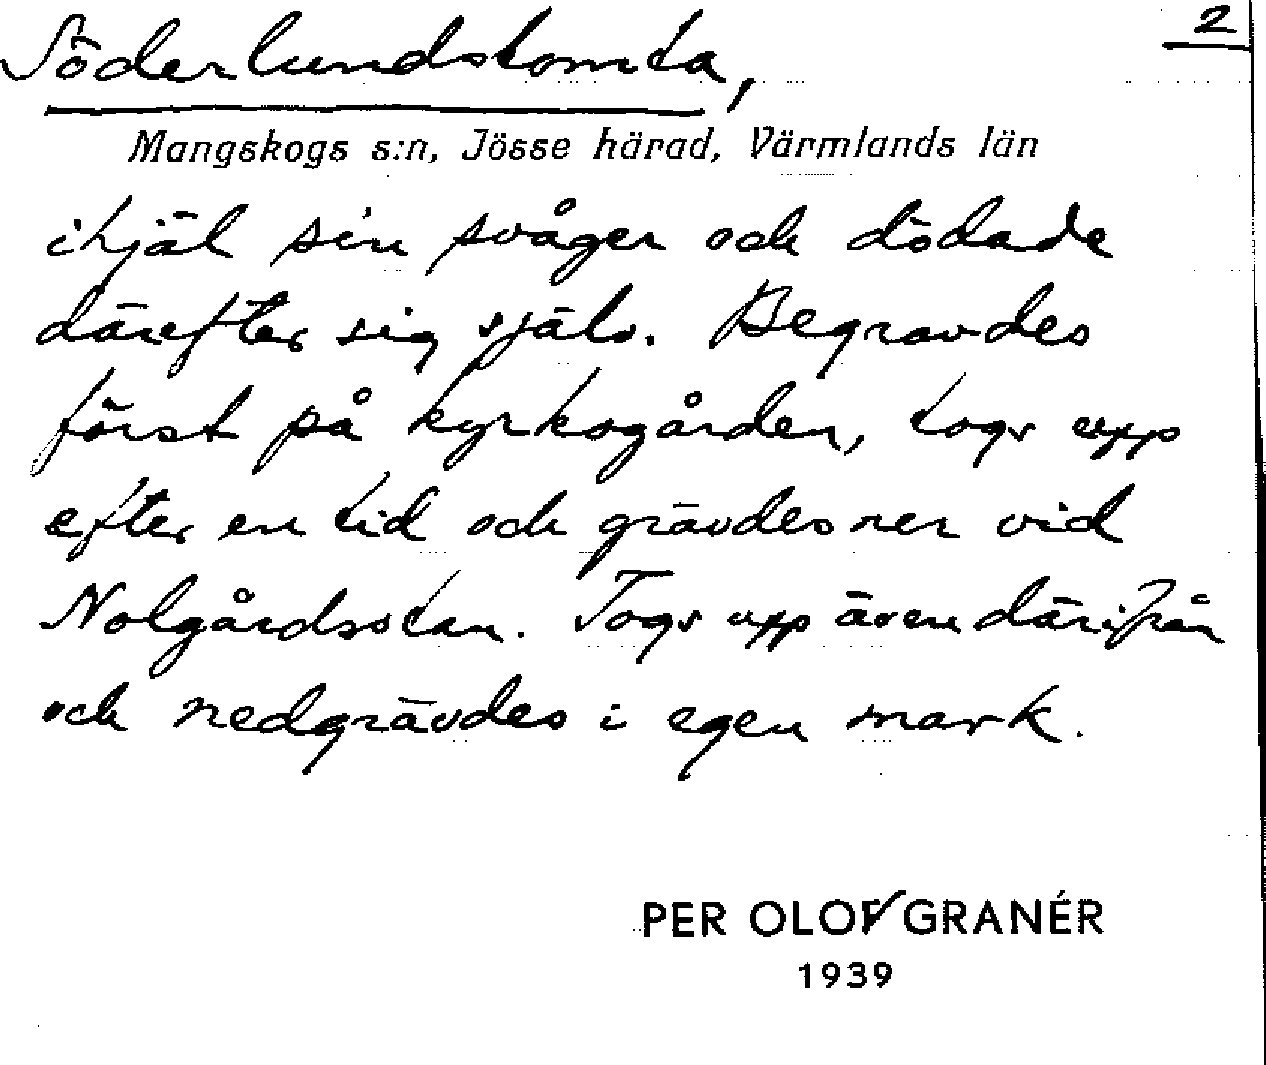 2
Söderlundstomta,
Mangskogs s:n, Jösse härad, Värmlands län
ihjäl sin svåger och dödade
därefter sig själv. Begravdes
först på kyrkogården, togs upp
efter en tid och grävdes ner vid
Nolgårdsstan. Togs upp även därifrån
och nedgrävdes i egen mark.
PER OLOF GRANÉR
1939